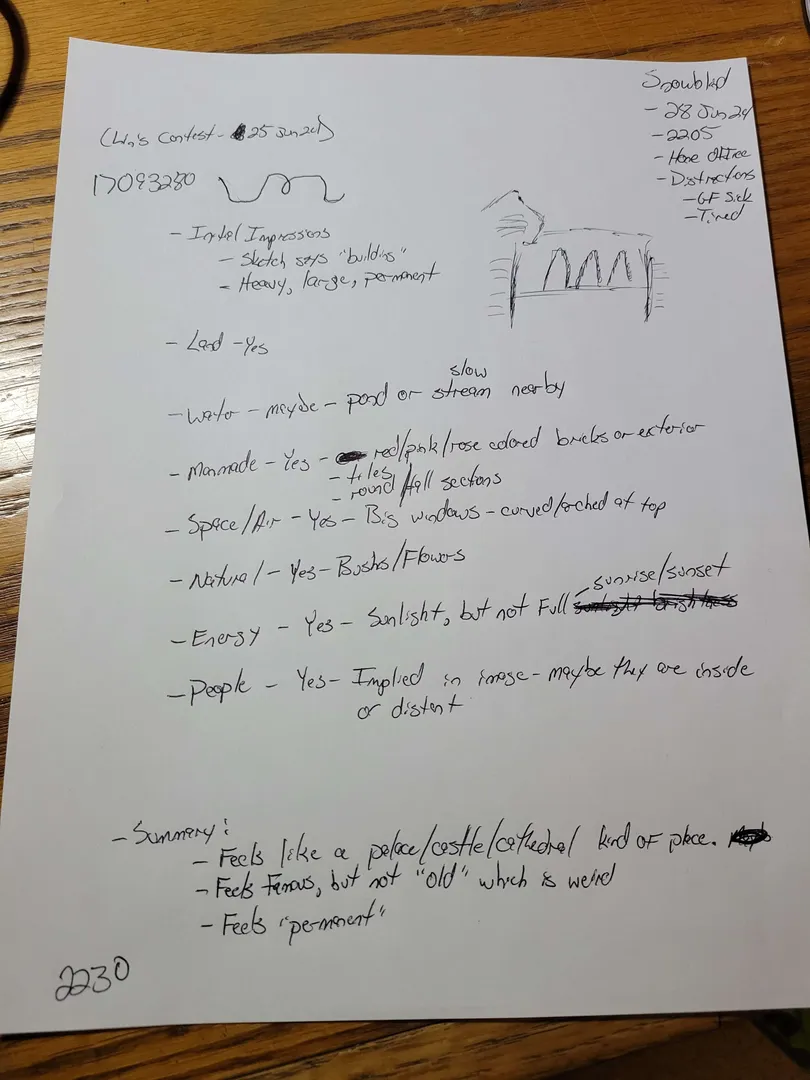 Snowbird
- 28 Jun 24
- 2205
- Home Office
- Distractions
- GF Sick
- Tired
(Lin's Contest - 25 Jun 24)
17093280
- Initial Impressions
- Sketch says "building"
- Heavy, large, permanent
- Land - Yes
- Water - maybe - pond or slow stream nearby
- Manmade - Yes - red/pink/rose colored bricks or exterior
- tiles
- round/tall sections
- Space/Air - Yes - Big windows - curved/arched at top
- Natural - Yes - Bushs/Flowers
- Energy - Yes - Sunlight, but not Full - sunrise/sunset
- People - Yes - Implied in image - maybe they are inside
or distant
- Summary:
- Feels like a palace/castle/cathedral kind of place.
- Feels Famous, but not "old" which is weird
- Feels "permenent"
2230